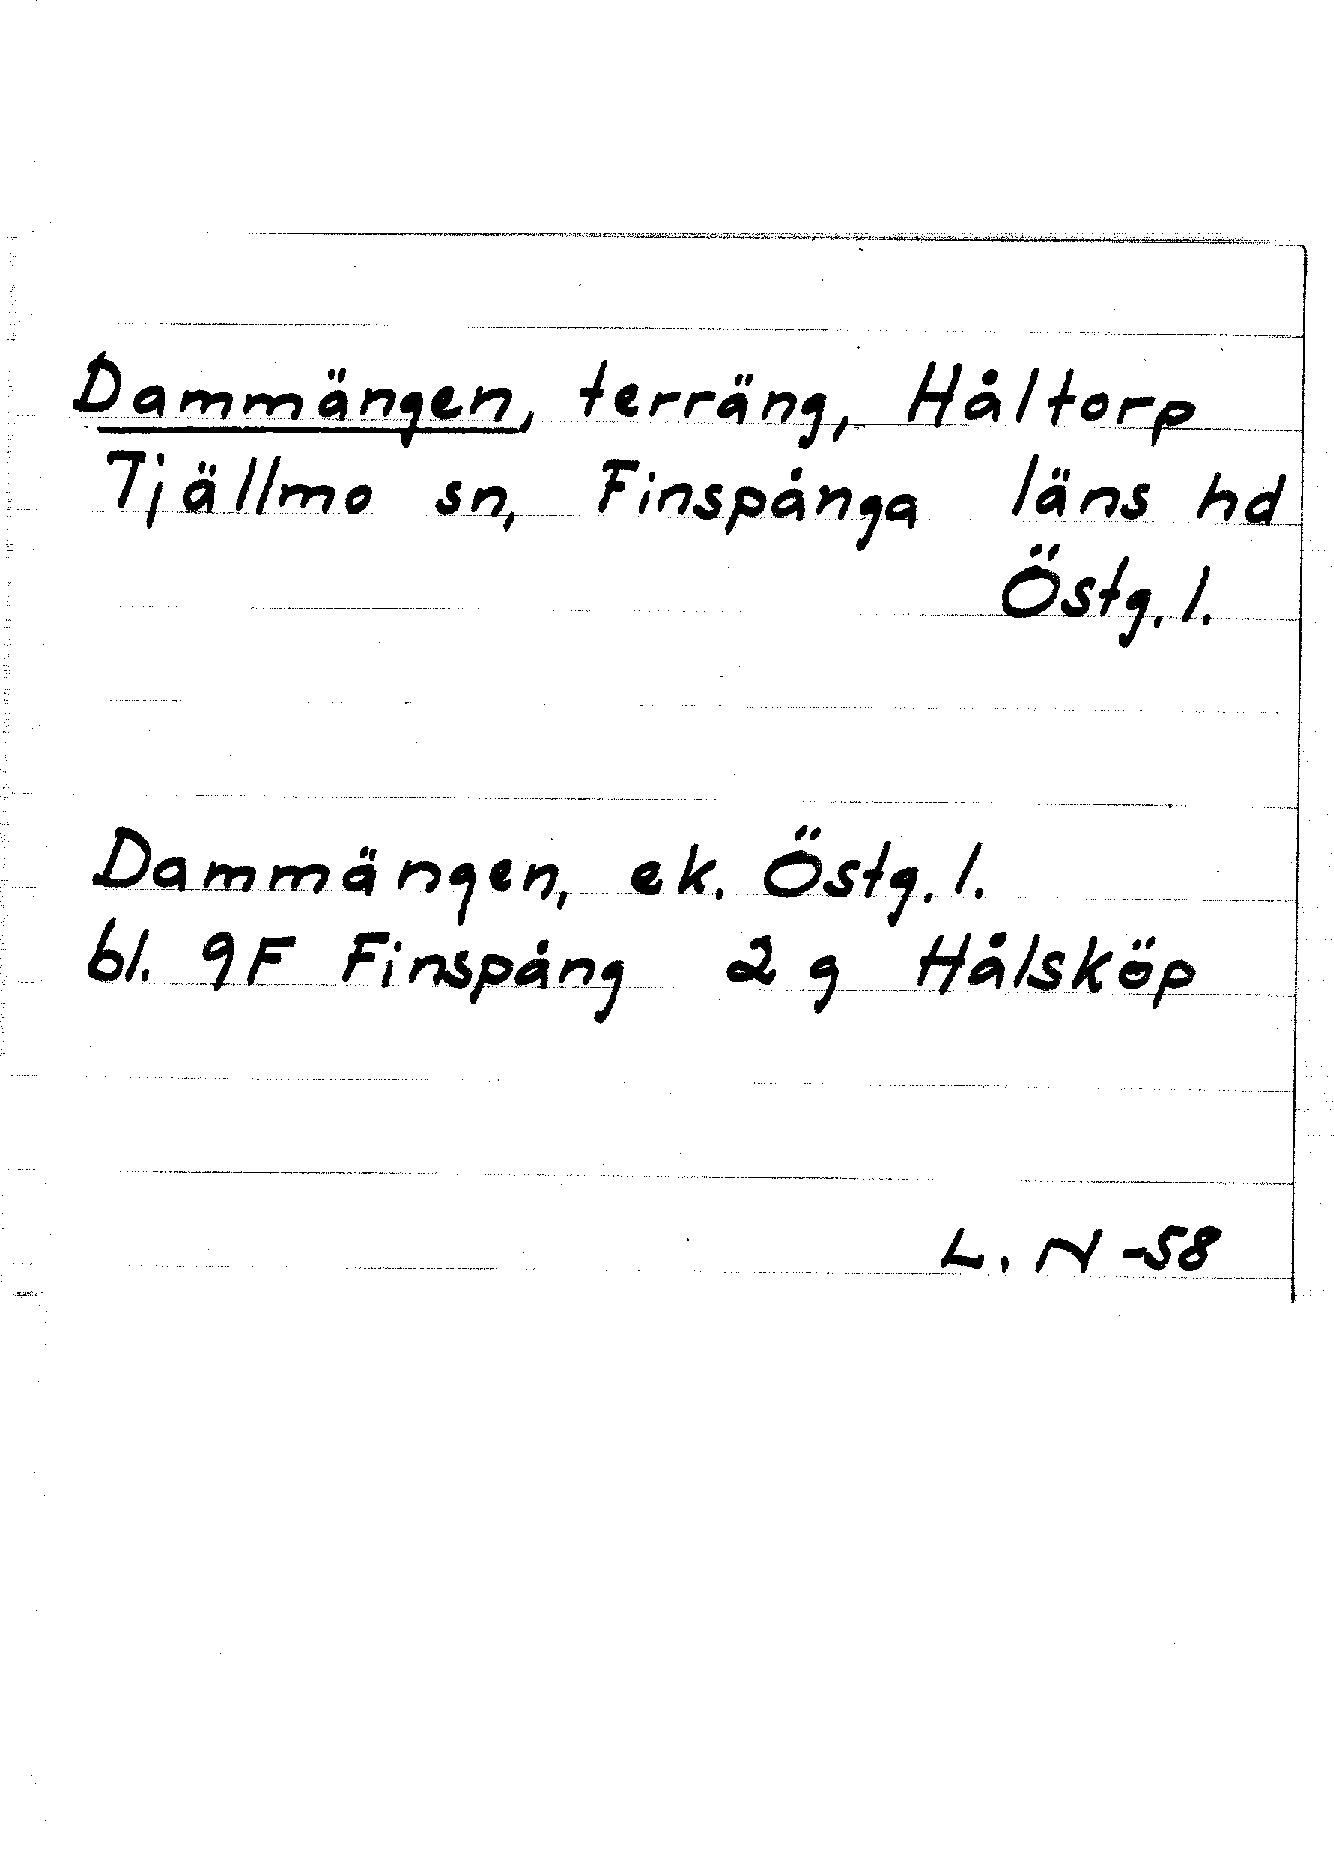 Dammängen, terräng, Håltorp
Tjällmo sn, Finspånga läns hd
Östg. l.
Dammängen, ek. Östg. l.
bl. 9F Finspång 2 g Hålsköp
L. N -58